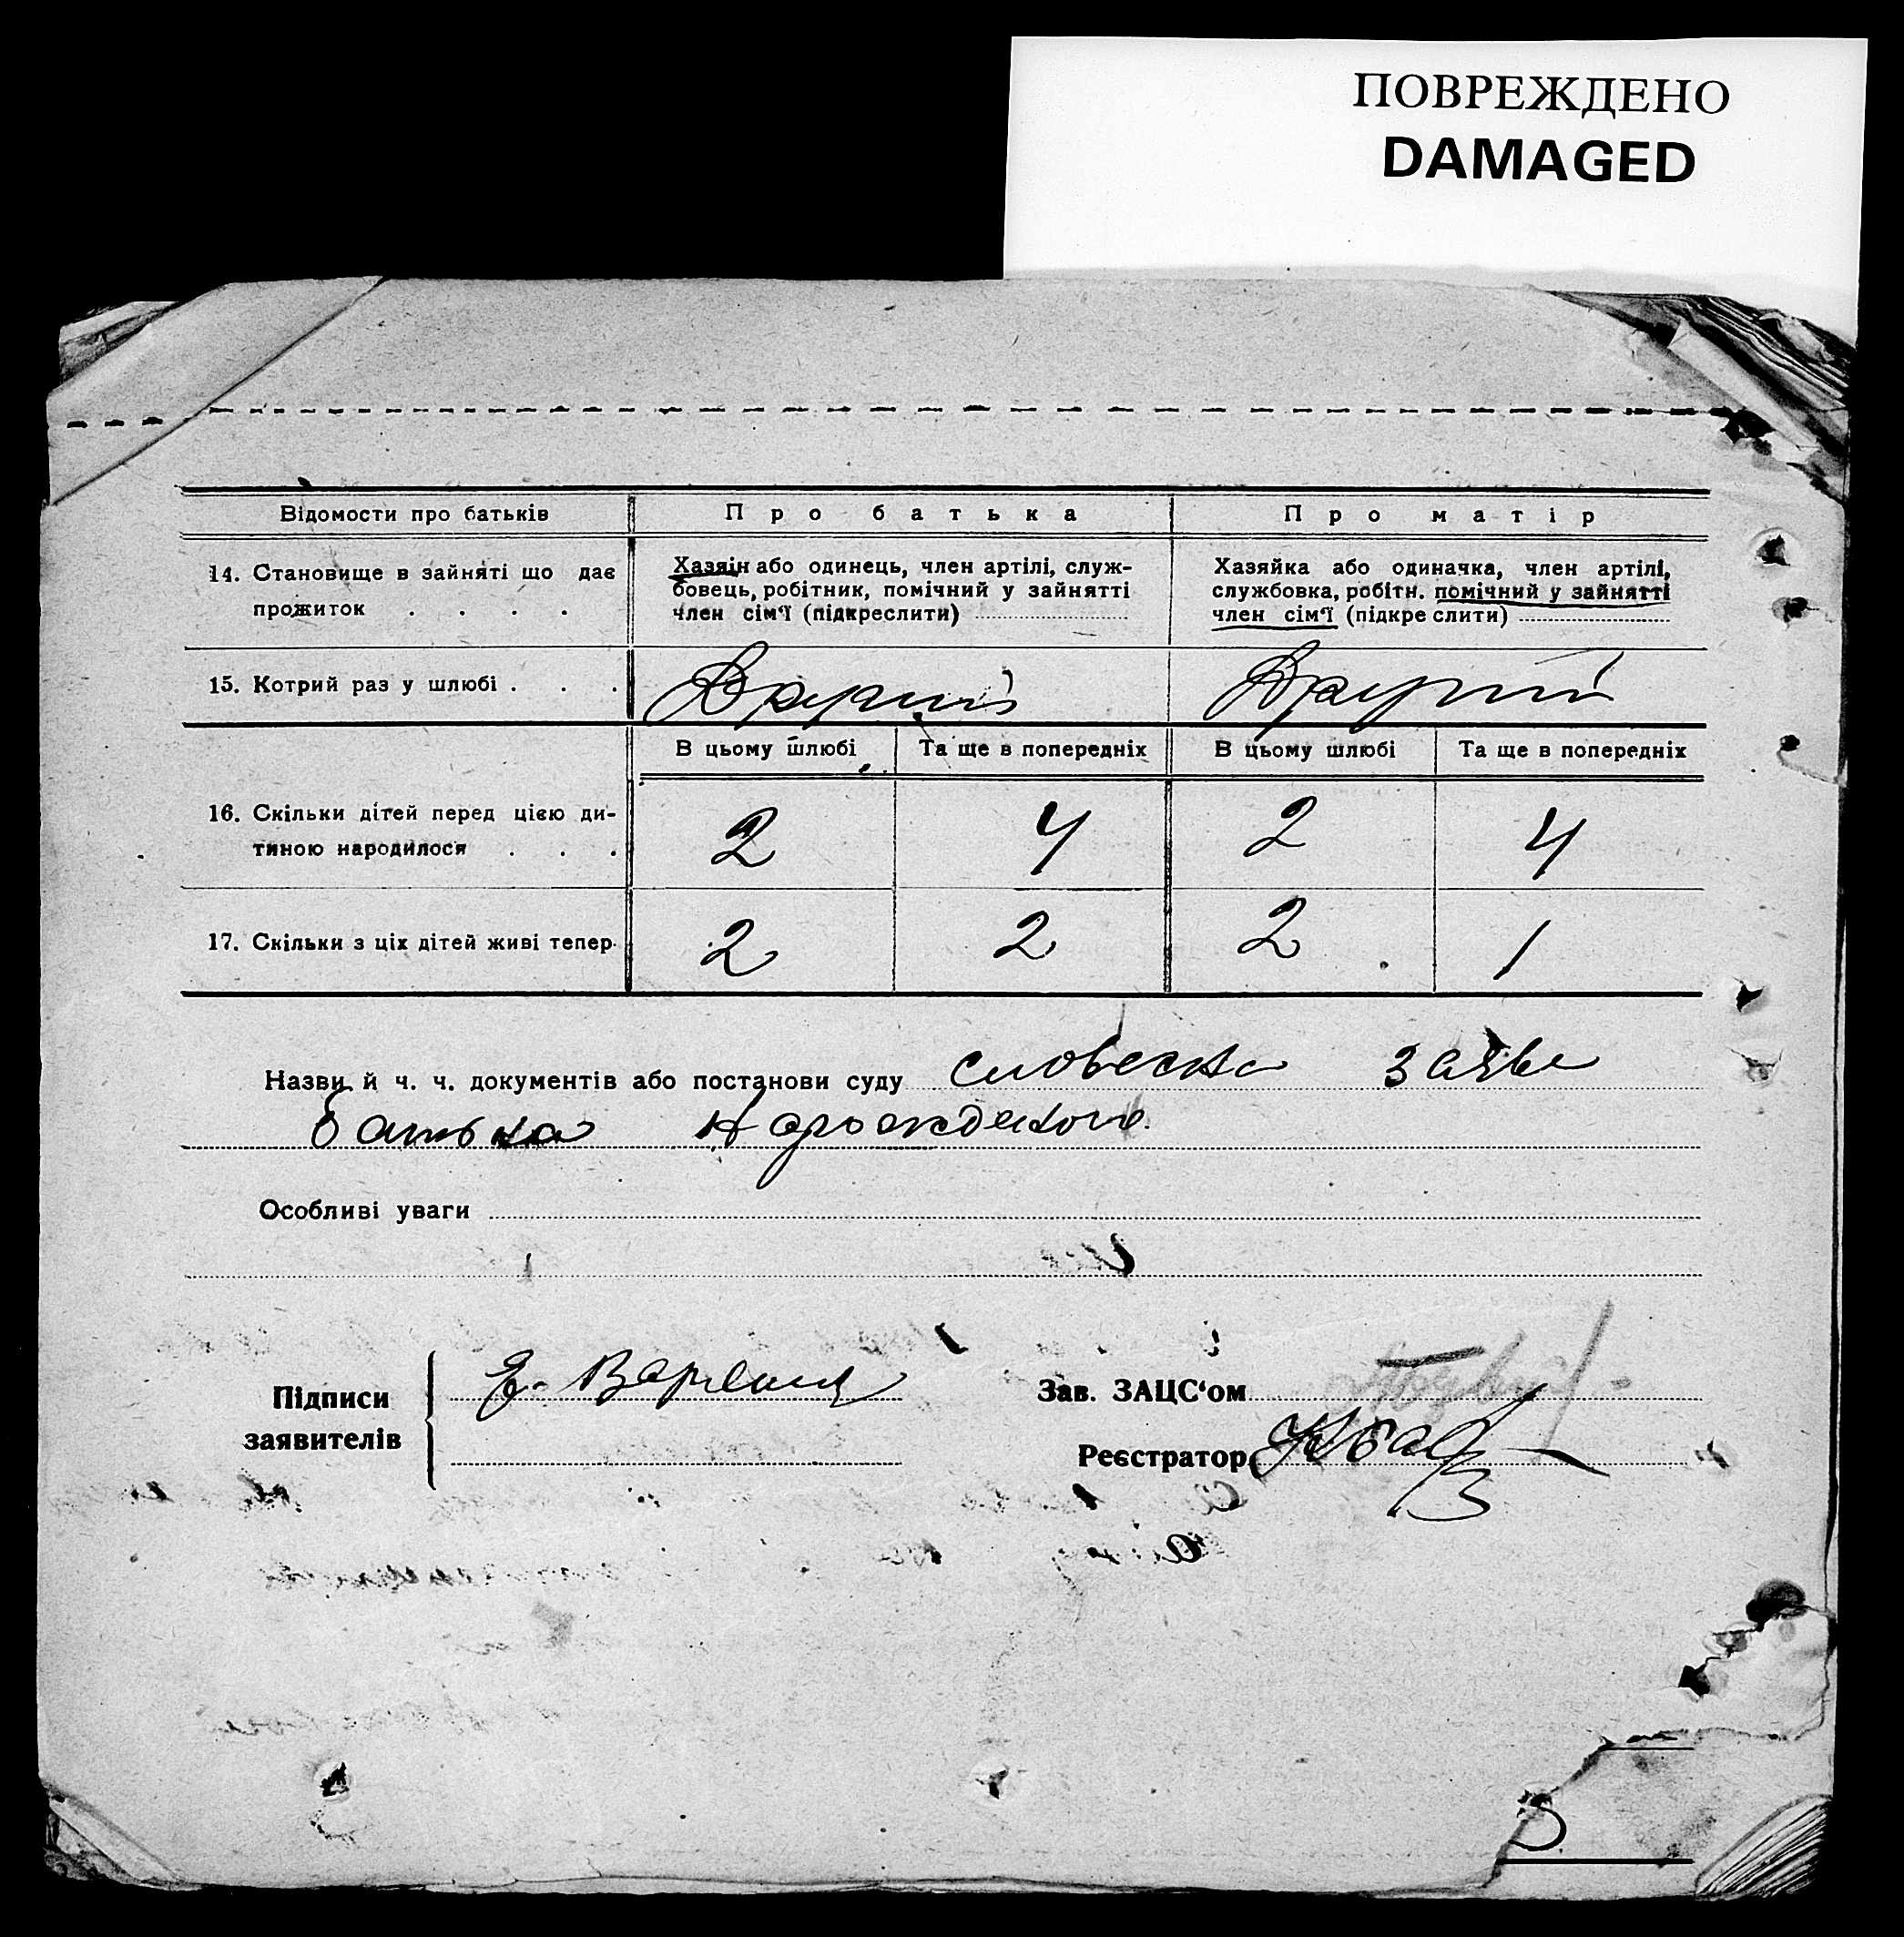 ПОВРЕЖДЕНО
DAMAGED
Відомости про батьків
Про батька
Про матір
14. Становище в зайняті що дає
прожиток . . . .
Хазяїн або одинець, член артілі, служ-
бовець, робітник, помічний у зайнятті
член сім'ї (підкреслити)
Хазяйка або одиначка, член артілі,
службовка, робітн. помічний у зайнятті
член сім'ї (підкреслити)
15. Котрий раз у шлюбі . . .
Другий
Другий
В цьому шлюбі
Та ще в попередніх
В цьому шлюбі
Та ще в попередніх
16. Скільки дітей перед цією ди-
тиною народилося . . .
2
4
2
4
17. Скільки з ціх дітей живі тепер
2
2
2
1
Назви й ч. ч. документів або постанови суду словесна заява
батька
Особливі уваги
Підписи
заявителів
Зав. ЗАЦС'ом
Реєстратор